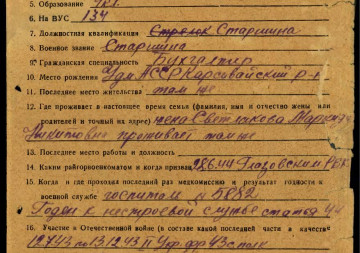 5. Образование 4кл.
6. На ВУС 134
7. Должностная квалификация Стрелок Старшина
8. Военное звание Старшина
9. Гражданская специальность Бухгалтер
10. Место рождения Удм АССР Карсовайский р-н
11. Последнее место жительства там же
12. Где проживает в настоящее время семья (фамилия, имя и отчество жены или
родителей и точный их адрес) жена Светлакова Мария
проживает там же
13. Последнее место работы и должность
14. Каким райгорвоенкоматом и когда призван Глазовским РВК
15. Когда и где проходил последний раз медкомиссию и результат годности к
военной службе госпитали
Годен к нестроевой службе статья
16. Участие в Отечественной войне (в составе какой последней части и в качестве
43с. полк